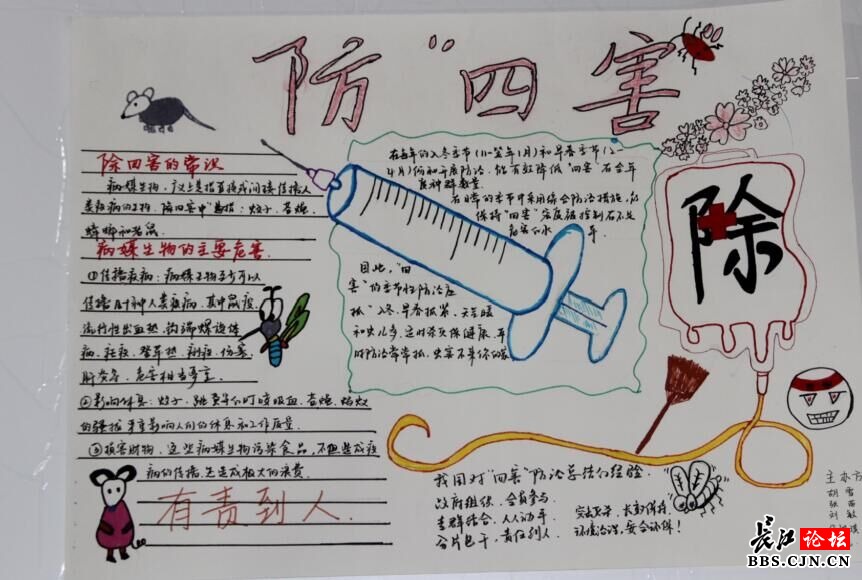 防"四害
除四害的常识
病媒生物，广义上是指直接或间接传播人
类疾病的生物，除四害中"是指：蚊子、苍蝇、
蟑螂和老鼠．
病媒生物的主要危害．
①传播疾病：病媒生物至少可以
传播几十种人类疾病，其中鼠疫、
流行性出血热、钩端螺旋体
病、疟疾、登革热、痢疾、伤寒、
肝炎等，危害相当严重．
②影响休息：蚊子、跳蚤等们叮咬吸血，苍蝇、蟑螂
的骚扰，严重影响人们的休息和工作质量．
③损害财物，这些病媒生物污染食品，不但造成疫
病的传播，也造成极大的浪费．
有责到人．
在每年的入冬季节(11-翌年1月)和早春季节(2-
4月)份和开展防治，能有效降低"四害"在全年
度种群数量．
在日常的季节中采用综合防治措施，
保持"四害"密度被控制在不足
危害的水平．
因此，"四
害"的季节性防治应
抓"入冬、早春抓紧，天气暖
和虫儿多，这时须灭保健康，平
时防治常常抓，虫害不来你的家
除
我国对"四害"防治总结的经验．
政府组织，全员参与．
专群结合，人人动手．
分片包干，责任到人．
突击灭杀，长期保持，
环境治理，安全环保！
主办方
胡雪
张苗
刘敏
长江论坛
BBS.CJN.CN